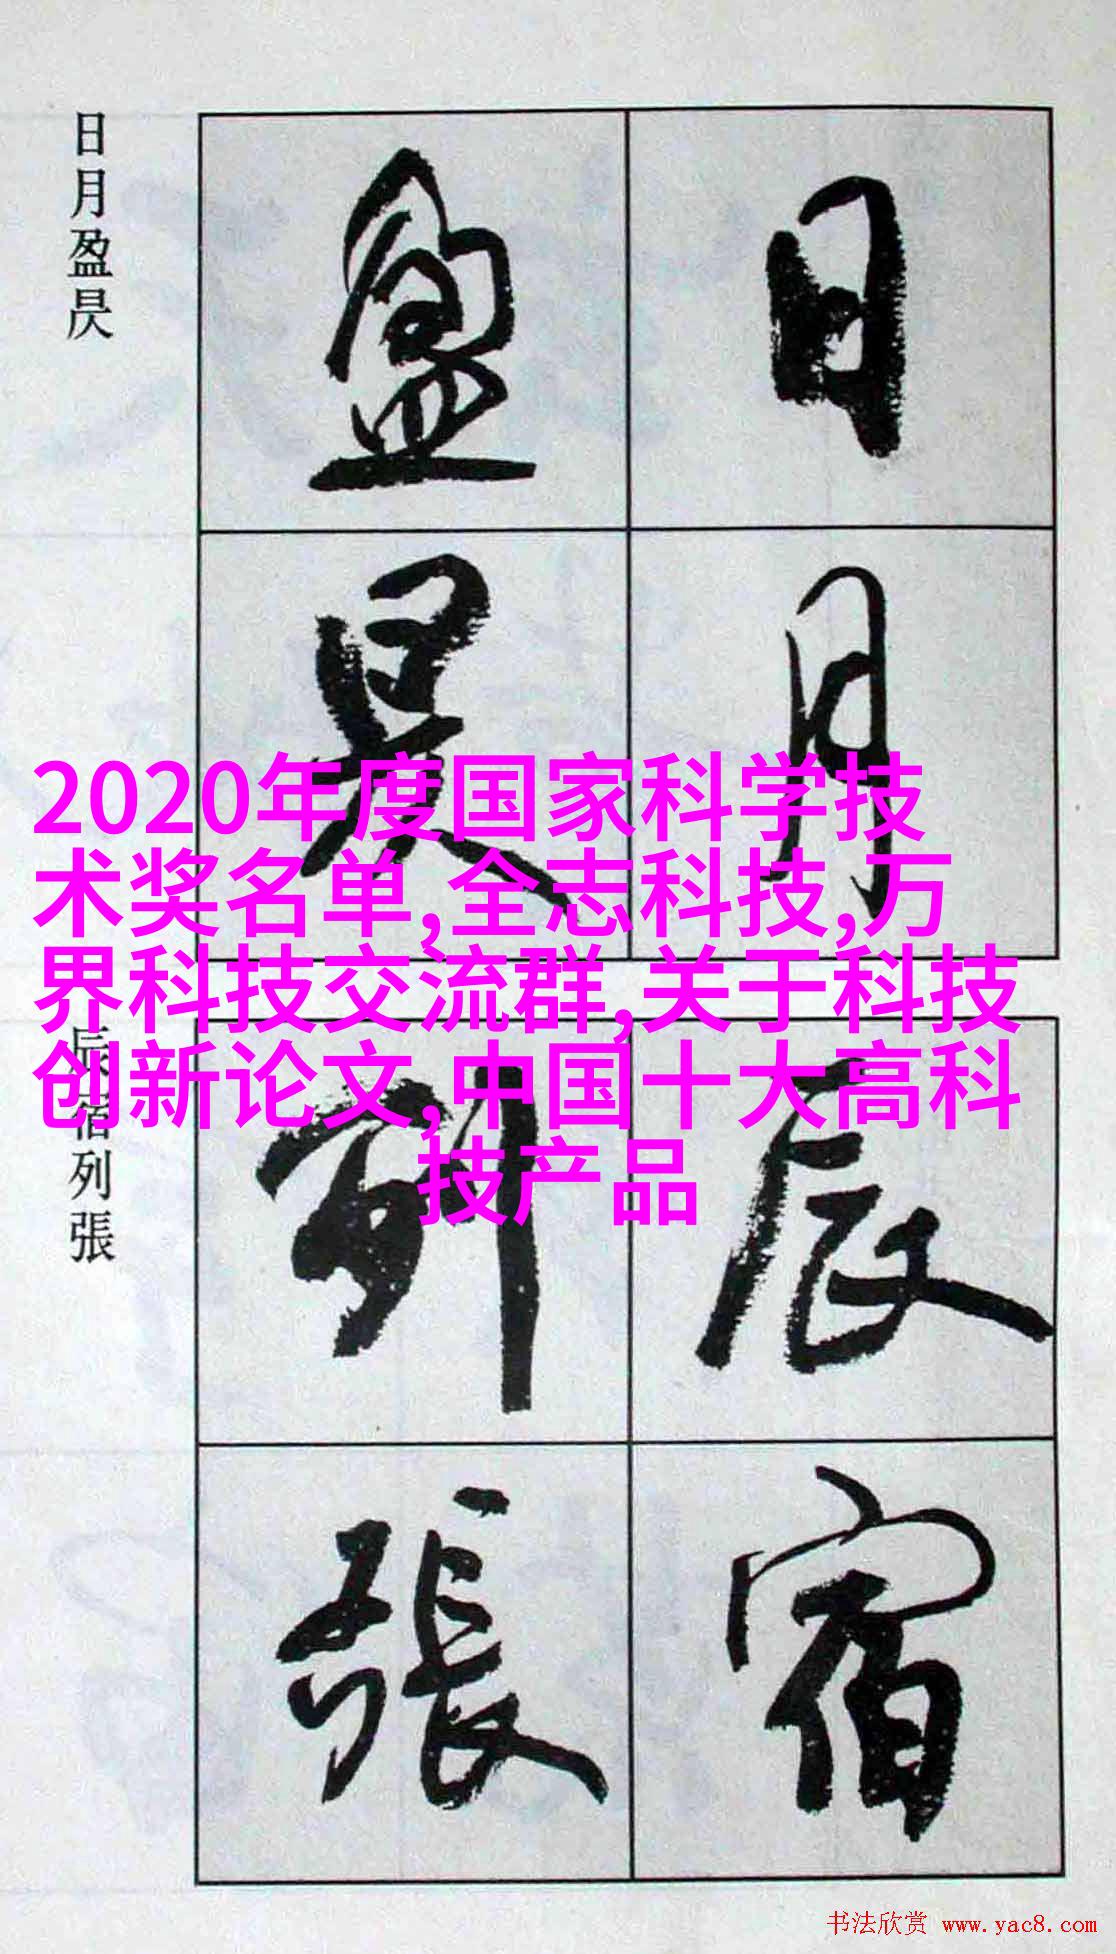 日月盈昃
日
月
盈
昃
2020年度国家科学技
术奖名单,全志科技,万
界科技交流群,关于科技
创新论文,中国十大高科
技产品
辰宿列張
辰
宿
列
張
书法欣赏 www.yac8.com